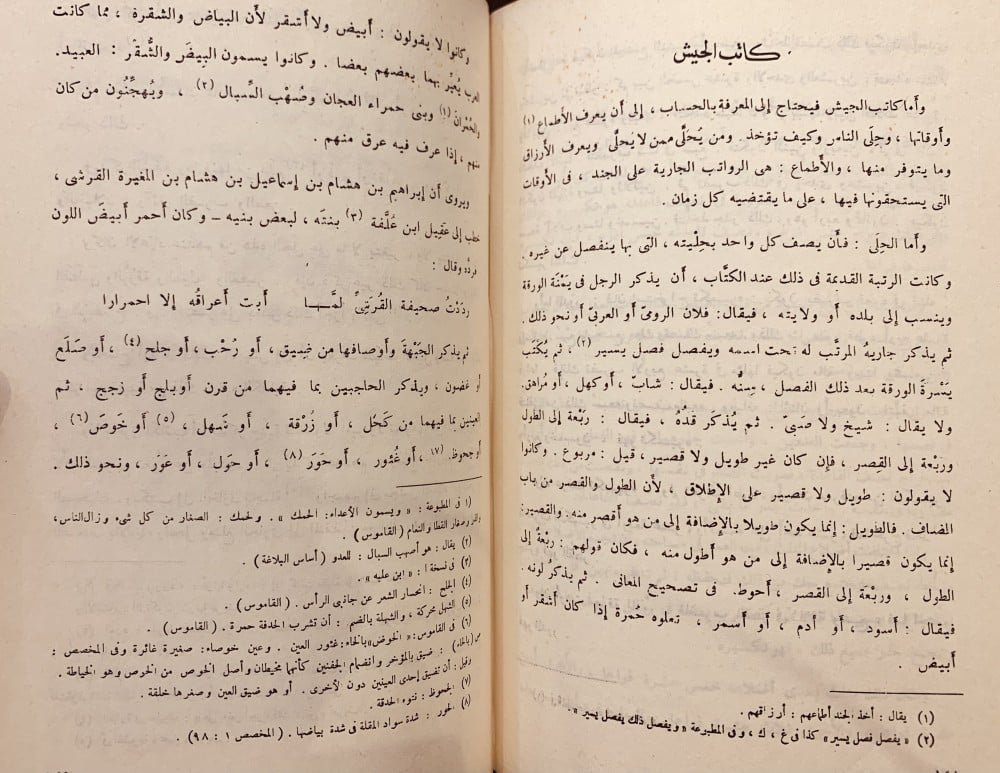 كاتب الجيش
وأما كاتب الجيش فيحتاج إلى المعرفة بالحساب ، إلى أن يعرف الأطماع (١)
وأوقاتها ، وحِلَى الناس وكيف تؤخذ . ومن يُحلَّى ممن لا يحلَّى ويعرف الأرزاق
وما يتوفر منها ، والأَطماع : هى الرواتب الجارية على الجند ، فى الأوقات
التى يستحقونها فيها ، على ما يقتضيه كل زمان .
وأما الحِلَى : فأَن يصف كل واحد بحِلْيته ، التى بها ينفصل عن غيره .
وكانت الرتبة القديمة فى ذلك عند الكتَّاب ، أَن يذكر الرجل فى يَمْنَة الورقة
وينسب إلى بلده أو ولايته ، فيقال : فلان الرومىّ أو العربىّ أو نحو ذلك .
ثم يذكر جاريهُ المرتَّب له تحت اسمه ويفصل فصل يسير (٢) ، ثم يُكْتَب
يَسْرةَ الورقة بعد ذلك الفصل ، سِنُّه . فيقال : شابّ ، أو كهل ، أو مُراهق .
ولا يقال : شيخ ولا صَبىّ . ثم يُذكَر قدُّهُ ، فيقال : رَبْعة إلى الطول
وربْعة إلى القِصر ، فإن كان غير طويل ولا قصير ، قيل : مربوع . وكانوا
لا يقولون : طويل ولا قصير على الإِطلاق ، لأن الطول والقصر من باب
المضاف . فالطويل : إنما يكون طويلا بالإضافة إلى من هو أقصر منه . والقصير :
إنما يكون قصيرا بالإضافة إلى من هو أطول منه ، فكان قولهم : ربْعةٌ إلى
الطول ، وربْعَة إلى القصر ، أَحوط . فى تصحيح المعانى . ثم يذكرُ لونه .
فيقال : أَسود ، أَو آدم ، أَو أَسمر ، تعلوه حُمرة إذا كان أشقر أو
أَبيض .
(١) يقال : أخذ الجند أطماعهم : أرزاقهم .
(٢) « يفصل فصل يسير » كذا فى غ ، ك ، وفى المطبوعة « ويفصل ذلك يفصل يسير » .
وكانوا لا يقولون : أَبيض ولا أشقر لأن البياض والشقرة ، مما كانت
العرب يُعَيِّر بهما بعضهم بعضا . وكانوا يسمون البِيضَ والشُّقْر : العبيد .
والحُمْران (١) وبنى حمراء العجان وصُهْب السِّبال (٢) ، ويُهجِّنُون من كان
منهم ، إذا عرف فيه عرق منهم .
ويروى أن إبراهيم بن هشام بن إسماعيل بن هشام بن المغيرة القرشى ،
خطب إلى عَقِيل ابن عُلَّفة (٣) بنتَه ، لبعض بنيه – وكان أحمر أبيضَ اللون
فردّه وقال :
رددْتُ صحيفة القَرَشِىِّ لمَّـــا أبت أَعراقُه إلا احمرارا
ثم يذكر الجَبْهَة وأَوصافها من ضِيق ، أَو رُحْب ، أَو جلح (٤) ، أَو صَلَع
أو غضون ، ويذكر الحاجبين بما فيهما من قرن أَو بلج أَو زجج ، ثم
العينين بما فيهما من كَحَل ، أَو زُرْقة ، أَو شَهل ، (٥) أَو خَوَص (٦) ،
أو جحوظ (٧) ، أَو غُئور ، أَو حَوَر (٨) ، أَو حَول ، أَو عَوَر ، ونحو ذلك .
(١ فى المطبوعة : « ويسمون الأعداء : الحمك » . والحمك : الصغار من كل شىء ورذال الناس ،
وصغار القطا والنعام ( القاموس ) .
(٢) يقال : هو أصهب السبال : للعدو ( أساس البلاغة ) .
(٣) فى نسخة ا : « ابن عليه » .
(٤) الجلح : انحسار الشعر عن جانبى الرأس . ( القاموس ) .
(٥) الشهل محركة ، والشهلة بالضم : أن تشرب الحدقة حمرة . ( القاموس ) .
(٦) فى القاموس : « الخوض » بالخاء : غئور العين . وعين خوصاء : صغيرة غائرة وفى المخصص :
(بالحاء) : ضيق بالمؤخر وانضمام الجفنين كأنهما مخيطان وأصل الحوص من الحوص وهو الخياطة .
وقيل : أن تضيق إحدى العينين دون الأخرى . أو هو ضيق العين وصغرها خلقة .
(٧) الجحوظ : نتوء الحدقة .
(٨) الحور : شدة سواد المقلة فى شدة بياضها . ( المخصص ١ : ٩٨ ) .